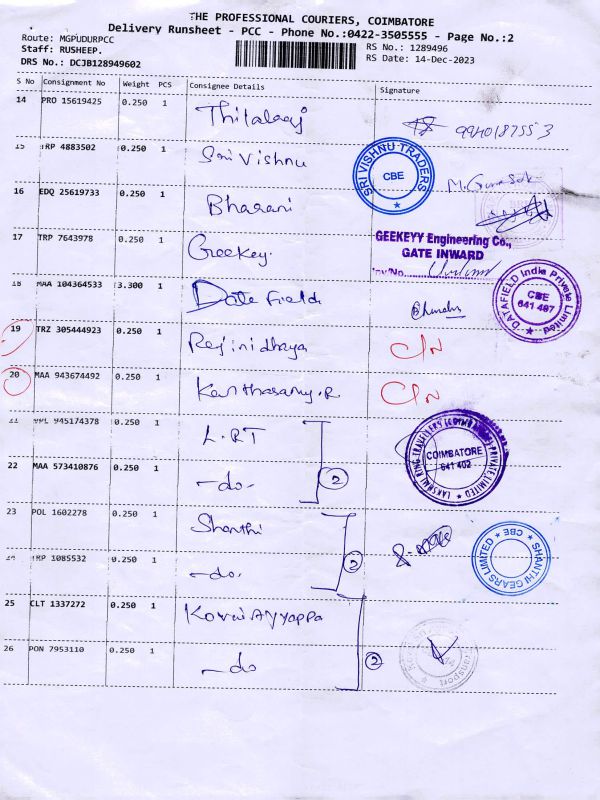 THE PROFESSIONAL COURIERS, COIMBATORE
Delivery Runsheet - PCC - Phone No.:0422-3505555 - Page No.:2
Route: MGPUDURPCC
RS No.: 1289496
Staff: RUSHEEP.
RS Date: 14-Dec-2023
DRS No.: DCJB128949602
S No Consignment No Weight PCS Consignee Details Signature
14 PRO 15619425 0.250 1 Thilalaaj 9940187553
15 TRP 4883502 0.250 1 Sri Vishnu
SRI VISHNU TRADERS
CBE
16 EDQ 25619733 0.250 1 Bharani
17 TRP 7643978 0.250 1 Geekey
GEEKEYY Engineering Co.,
GATE INWARD
Inv/No.
18 MAA 104364533 3.300 1 Date Field
DATAFIELD India Private Limited
CBE
641 407
19 TRZ 305444923 0.250 1 Rejinidhaya C/N
20 MAA 943674492 0.250 1 Kanthasamy.R C/N
21 945174378 0.250 1 L.RT
22 MAA 573410876 0.250 1 -do- 2
LAKSHMI RING TRAVELLERS (COIMBATORE) PRIVATE LIMITED
COIMBATORE
641 402
23 POL 1602278 0.250 1 Shanthi
24 TRP 1085532 0.250 1 -do- 2
SHANTHI GEARS LIMITED
CBE
25 CLT 1337272 0.250 1 Kovai Ayyappa
26 PON 7953110 0.250 1 -do 2